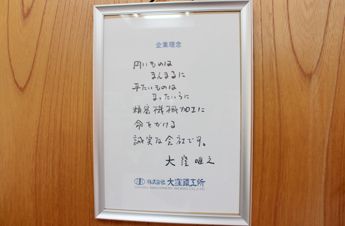 企業理念
円いものは
まんまるに
平たいものは
まったいらに
精密機械加工に
命をかける
誠実な会社です。
大窪
株式会社 大窪鐵工所